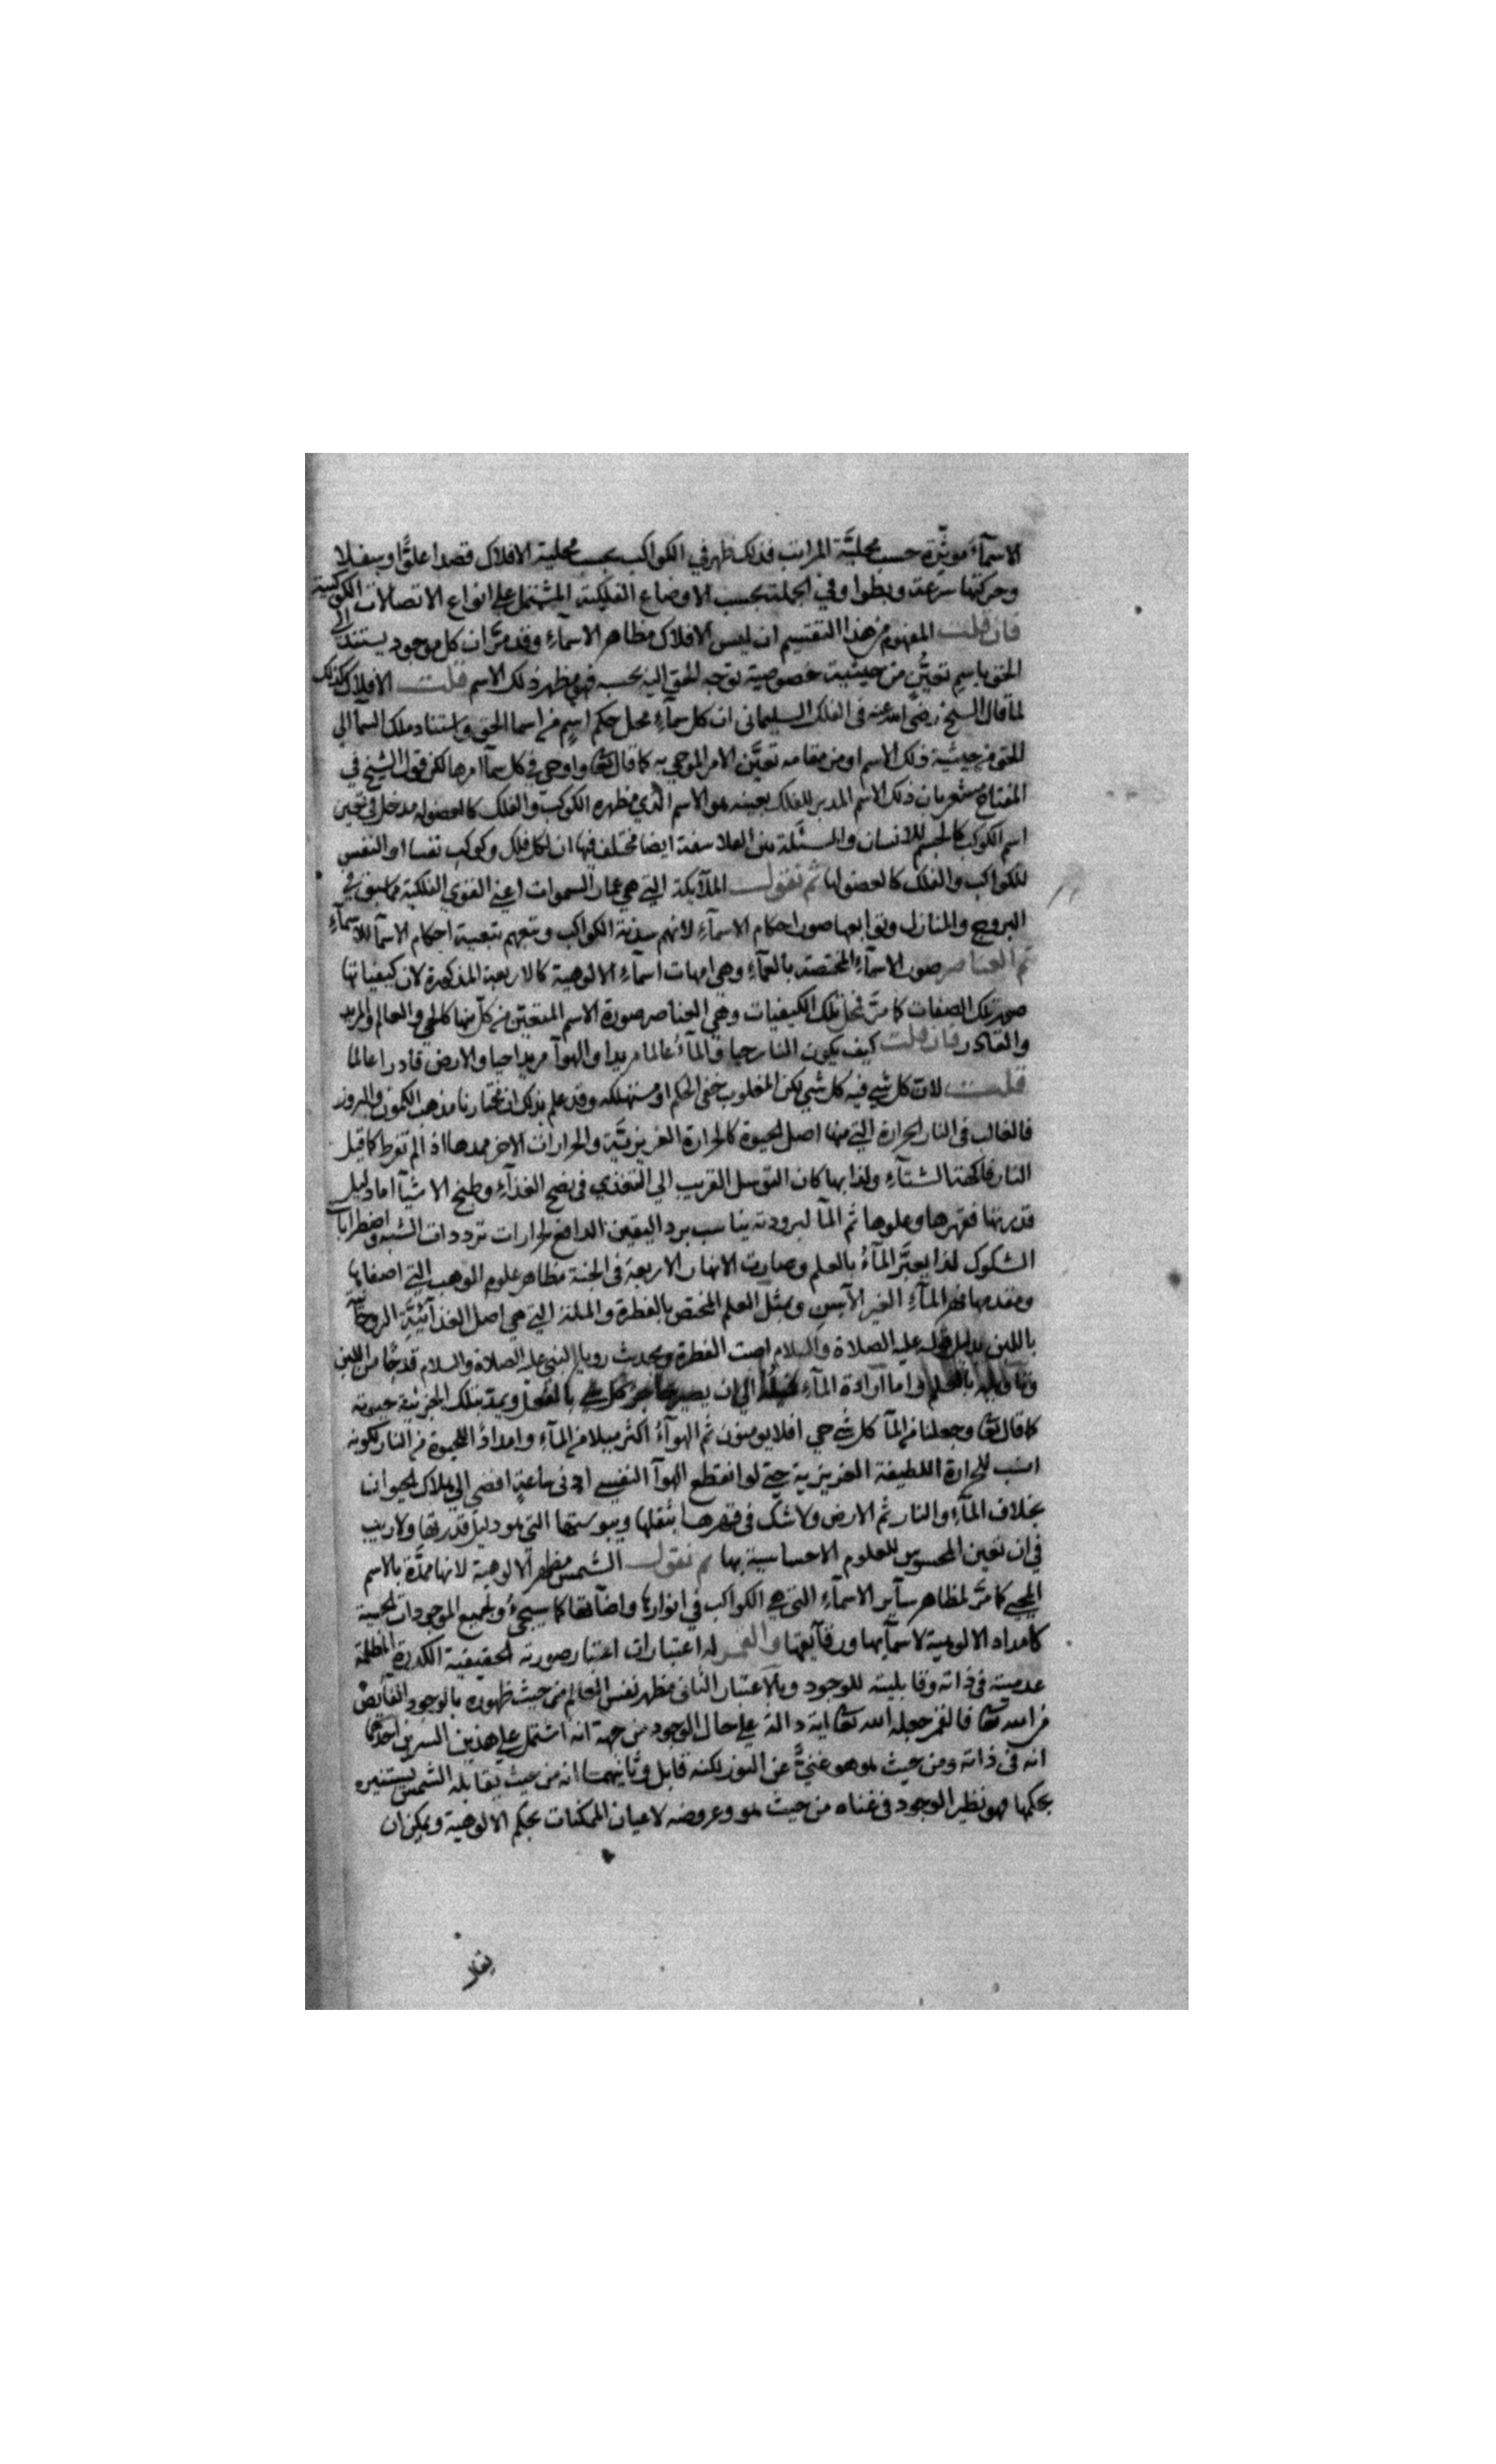 الاسمآء موثرة حسب محلية المراتب فذلك ظهر في الكواكب بحسب محلية الافلاك قصدا علوا وسفلا
وحركتها سرعة وبطوا وفي الجملة بحسب الاوضاع الفلكية المشتمل على انواع الاتصالات الكوكبية
فان قلت المفهوم من هذا التقسيم ان ليس الافلاك مظاهر الاسمآء وقد مر ان كل موجود يستند الى
الحق باسم تعين من حيثية خصوصية توجه الحق اليه بحسبه فهي مظهر ذلك الاسم قلت الافلاك كذلك
لما قال الشيخ رضى الله عنه فى الفلك السليمانى ان كل سمآء محل حكم اسم من اسما الحق واستناد ملك السمآ الي
الحق من حيثية ذلك الاسم ومن مقامه تعين الامر الموحي به كما قال تعا واوحي في كل سمآ امرها لكن قول الشيخ في
المفتاح مشعر بان ذلك الاسم المدبر للفلك بعينه هو الاسم الذي مظهره الكوكب والفلك كالعضو له مدخل في تعين
اسم الكوكب كالجسم للانسان والمسئلة من الفلاسفة ايضا مختلف فيها ان لكل فلك وكوكب نفسا او النفس
للكواكب والفلك كالعضو لها ثم نقول الملآيكة التي هي عمار السموات اعني القوي الفلكية مما سبق في
البروج والمنازل وتوابعها صور احكام الاسمآء لانهم سدنة الكواكب وتبعهم بتبعية احكام الاسمآ للاسمآء
ثم العناصر صور الاسمآء المختصة بالعمآء وهي امهات اسمآء الالوهية كالاربعة المذكورة لان كيفياتها
صور تلك الصفات كما مر فمحل تلك الكيفيات وهي العناصر صورة الاسم المتعين من كل منها كالحي والعالم والمريد
والقادر فان قلت كيف يكون النار حيا والمآء عالما مريدا والهوآ مريدا حيا والارض قادرا عالما
قلت لان كل شي فيه كل شي لكن المغلوب خفي الحكم او مستهلكه وقد علم بذلك ان مختارنا مذهب الكمون والبروز
فالغالب فى النار الحرارة التي منها اصل الحيوة كالحرارة الغريزية والحرارات الاخر ممدها اذ الم تفرط كما قيل
النار فاكهة الشتآء ولذا بها كان التوسل القريب الي التغذي في نضج الغذآء وطبخ الاشيآ اما دليل
قدرتها فقهرها وعلوها ثم المآ لبرودته يناسب برد اليقين الدافع لحرارات ترددات الشبه واضطرابات
الشكوك لذا يعبر المآء بالعلم وصارت الانهار الاربعة في الجنة مظاهر علوم الموهب التي اصفاها
ومقدمها نهر المآء الغير الآسن ويمثل العلم المختص بالفطرة والملة التي هي اصل الغذآئية الروحانية
باللبن بدليل قوله عليه الصلاة والسلام اصبت الفطرة وبحديث رويا النبي عليه الصلاة والسلام قدحا من اللبن
وتاويله بالعلم واما ارادة المآء الي ان يصير جزء كل شي بالفعل ويمد بتلك الجزئية حيوته
كما قال تعا وجعلنا من المآ كل شي حي افلا يومنون ثم الهوآء اكثر ميلا من المآء وامداد الحيوة من النار لكونه
انسب للحرارة اللطيفة الغريزية حتي لو انقطع الهوآ النفسي ادنى ساعة افضي الي هلاك الحيوانات
بخلاف المآء والنار ثم الارض ولا شك في قهرها بثقلها ويبوستها التي هو دليل قدرتها ولا ريب
في ان تعين المحسوس للعلوم الاحساسية بها ثم نقول الشمس مظهر الالوهية لانها ممدة بالاسم
المحيي كما مر لمظاهر ساير الاسمآء التي هي الكواكب في انوارها واضآتها كما سيجيء ولجميع الموجودات الحسية
كامداد الالوهية لاسمآيها ورقآيقها والقمر له اعتباران اعتبار صورته الحقيقية الكدرة المظلمة
عدميته في ذاته وقابليته للوجود وبالاعتبار الثاني مظهر نفس العالم من حيث ظهوره بالوجود الفايض
من الله تعا فالقمر جعله الله تعا اية دالة علي حال الوجود من جهة انه اشتمل علي هذين السرين احدهما
انه في ذاته ومن حيث هو هو غني عن النور لكنه قابل وثانيهما انه من حيث يقابله الشمس يستنيره
بحكمها فهو نظير الوجود في غناه من حيث هو وعروضه لاعيان الممكنات بحكم الالوهية ويمكن ان
يقال